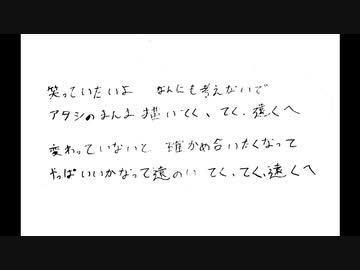 笑っていたいよ なんにも考えないで
アタシのまんま描いてく、てく、遠くへ
変わっていないと 確かめ合いたくなって
やっぱいいかなって遠のい てく、てく、遠くへ